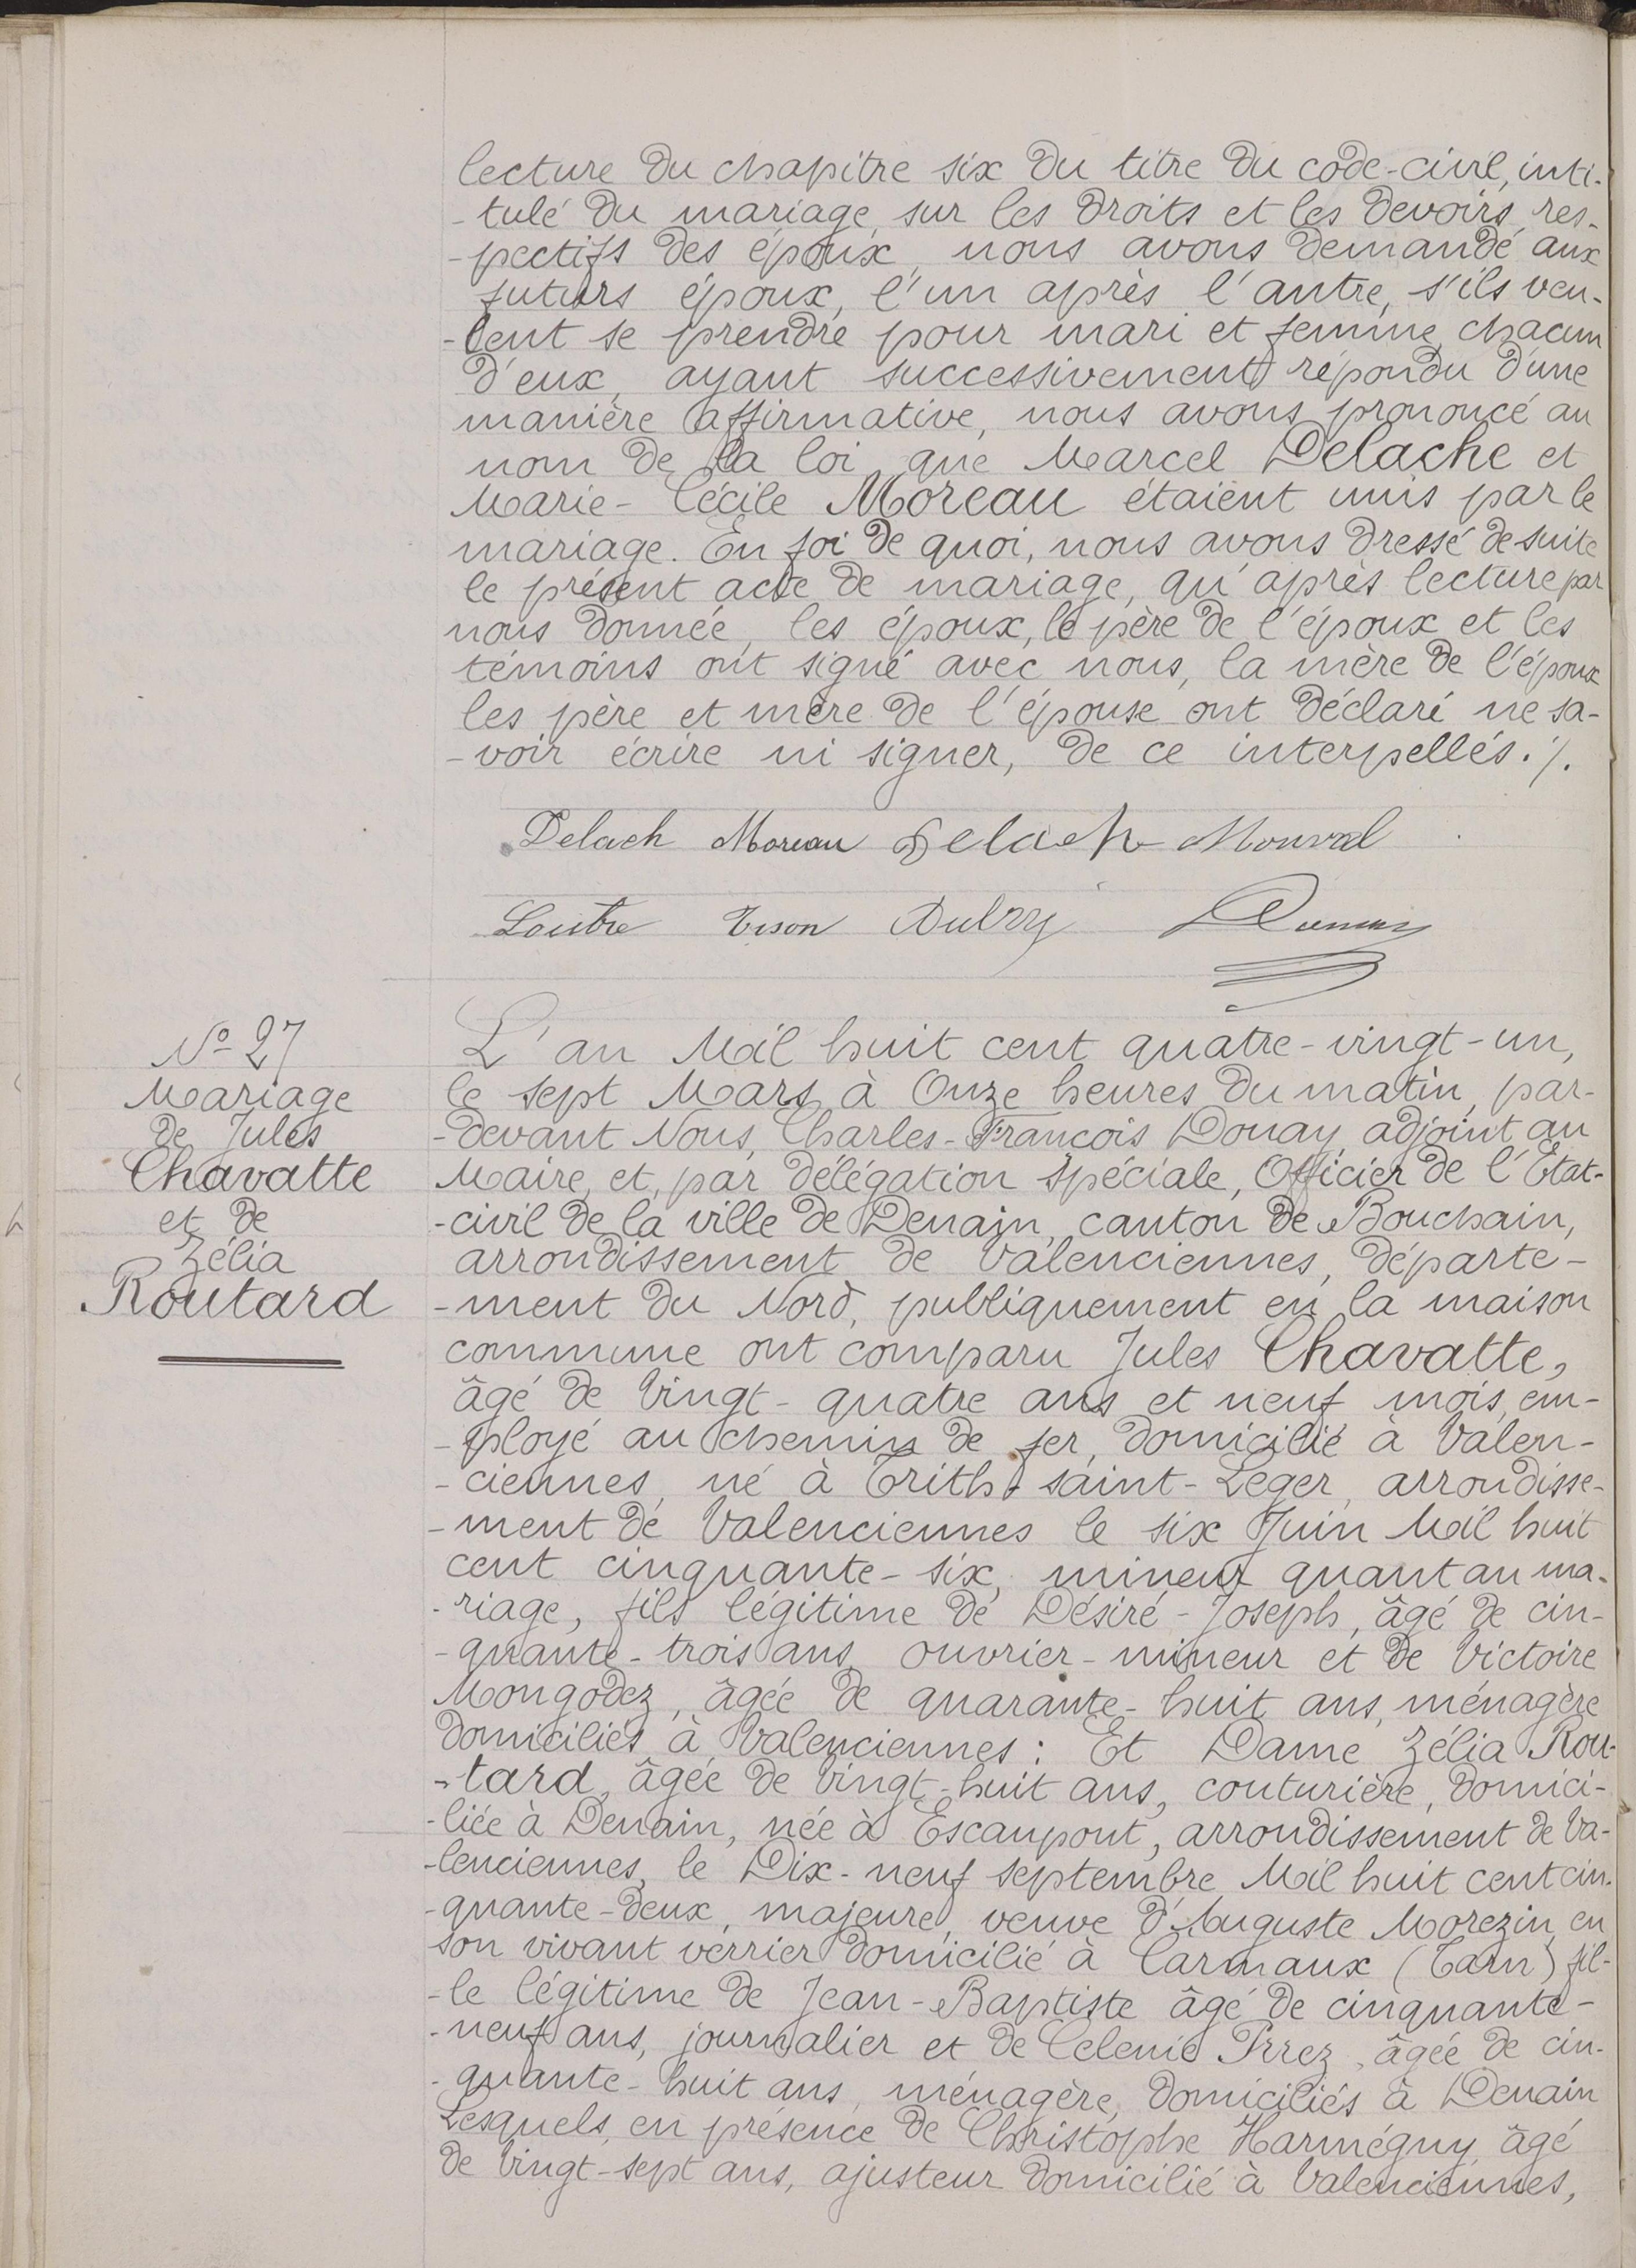 lecture du chapitre six du titre du code-civil, inti-
-tulé du mariage, sur les droits et les devoirs res-
-pectifs des époux, nous avons demandé aux
futurs époux, l'un après l'autre, s'ils veu-
-lent se prendre pour mari et femme, chacun
d'eux, ayant successivement répondu d'une
manière affirmative, nous avons prononcé au
nom de la loi, que Marcel Delache et
Marie-Cécile Moreau étaient unis par le
mariage. En foi de quoi, nous avons dressé de suite
le présent acte de mariage, qu'après lecture par
nous donnée, les époux, le père de l'époux et les
témoins ont signé avec nous, la mère de l'époux
les père et mère de l'épouse ont déclaré ne sa-
-voir écrire ni signer, de ce interpellés ./.
Delach Moreau Delach Monval
Loutre Tison Aubry
No 27
Mariage
de Jules
Chavatte
et de
Zélia
Routard
L'an Mil huit cent quatre-vingt-un,
le sept Mars à Onze heures du matin, par-
-devant Nous, Charles-François Douay, adjoint au
Maire, et, par délégation spéciale, Officier de l'Etat-
-civil de la ville de Denain, canton de Bouchain,
arrondissement de Valenciennes, départe-
-ment du Nord, publiquement en la maison
commune ont comparu Jules Chavatte,
âgé de Vingt-quatre ans et neuf mois, em-
-ployé au chemin de fer, domicilié à Valen-
-ciennes, né à Trith saint-Léger, arrondisse-
-ment de Valenciennes le six Juin Mil huit
cent cinquante-six, mineur quant au ma-
-riage, fils légitime de Désiré-Joseph, âgé de cin-
-quante-trois ans, ouvrier-mineur et de Victoire
Mongodez, âgée de quarante-huit ans, ménagère
domiciliés à Valenciennes : Et Dame Zélia Rou-
-tard, âgée de Vingt-huit ans, couturière, domici-
-liée à Denain, née à Escaupont, arrondissement de Va-
-lenciennes, le Dix-neuf septembre Mil huit cent cin-
-quante-deux, majeure, veuve d'Auguste Morezin, en
son vivant verrier domicilié à Carmaux (Tarn) fil-
-le légitime de Jean-Baptiste âgé de cinquante-
-neuf ans, journalier et de Celenie Pirez, âgée de cin-
-quante-huit ans, ménagère, domiciliés à Denain
Lesquels, en présence de Christophe Harmégny, âgé
de Vingt-sept ans, ajusteur domicilié à Valenciennes,